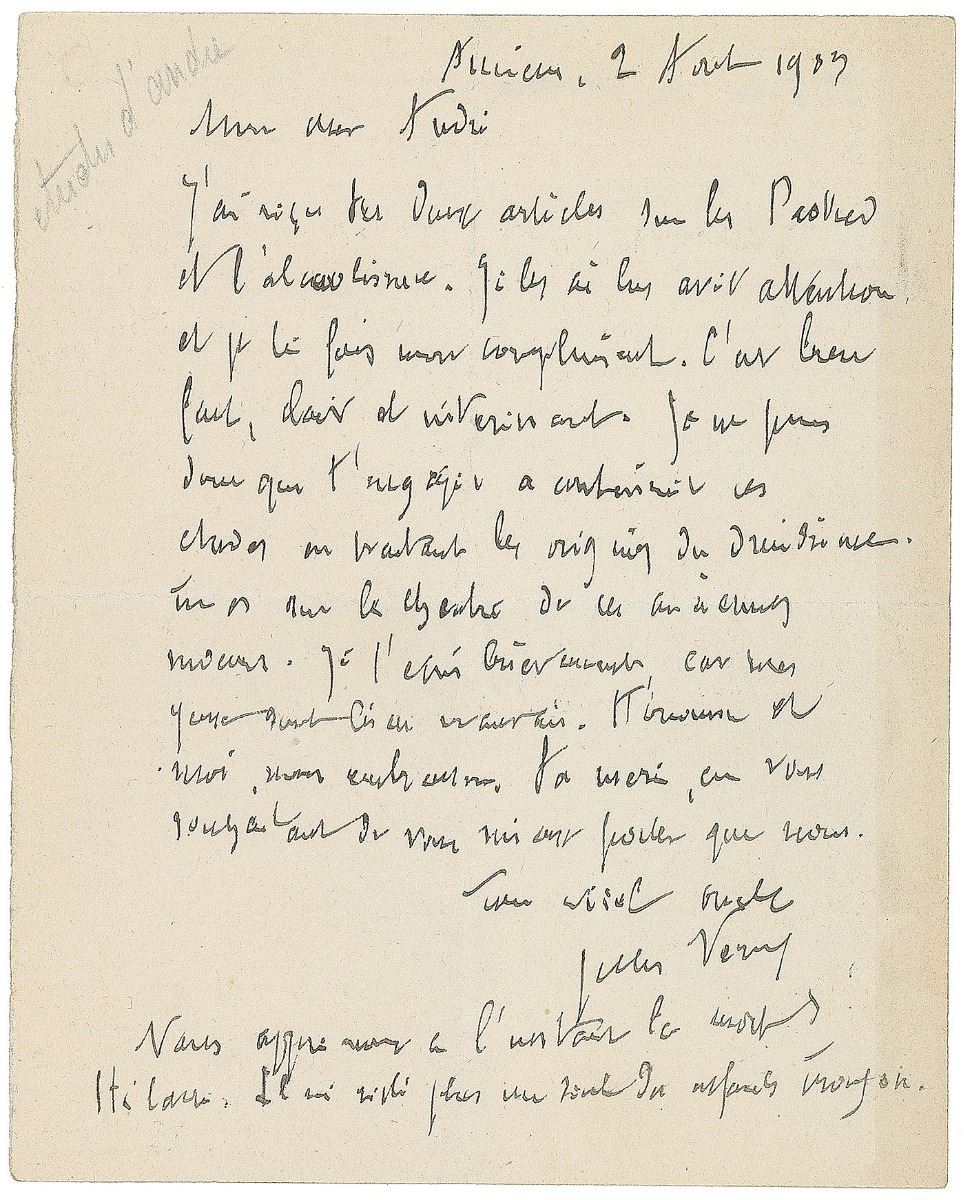 études d'andré
Amiens, 2 Aout 1903
Mon cher André
J'ai reçu tes deux articles sur les
et l'alcoolisme. Je les ai lus avec attention,
et je te fais mon compliment. C'est bien
fait, clair et intéressant. Je ne puis
donc que t'engager a continuer ces
etudes en traitant les origines du druidisme.
Tu es sur le théatre de ces anciennes
moeurs. Je t'ecris brievement, car mes
yeux sont bien mauvais. Honorine et
moi, nous embrassons, ta mere, en vous
souhaitant de vous mieux porter que nous.
Ton vieil oncle
Jules Verne
Nous apprenons a l'instant la mort d
Hilaire. Il ne reste plus un seul des enfants